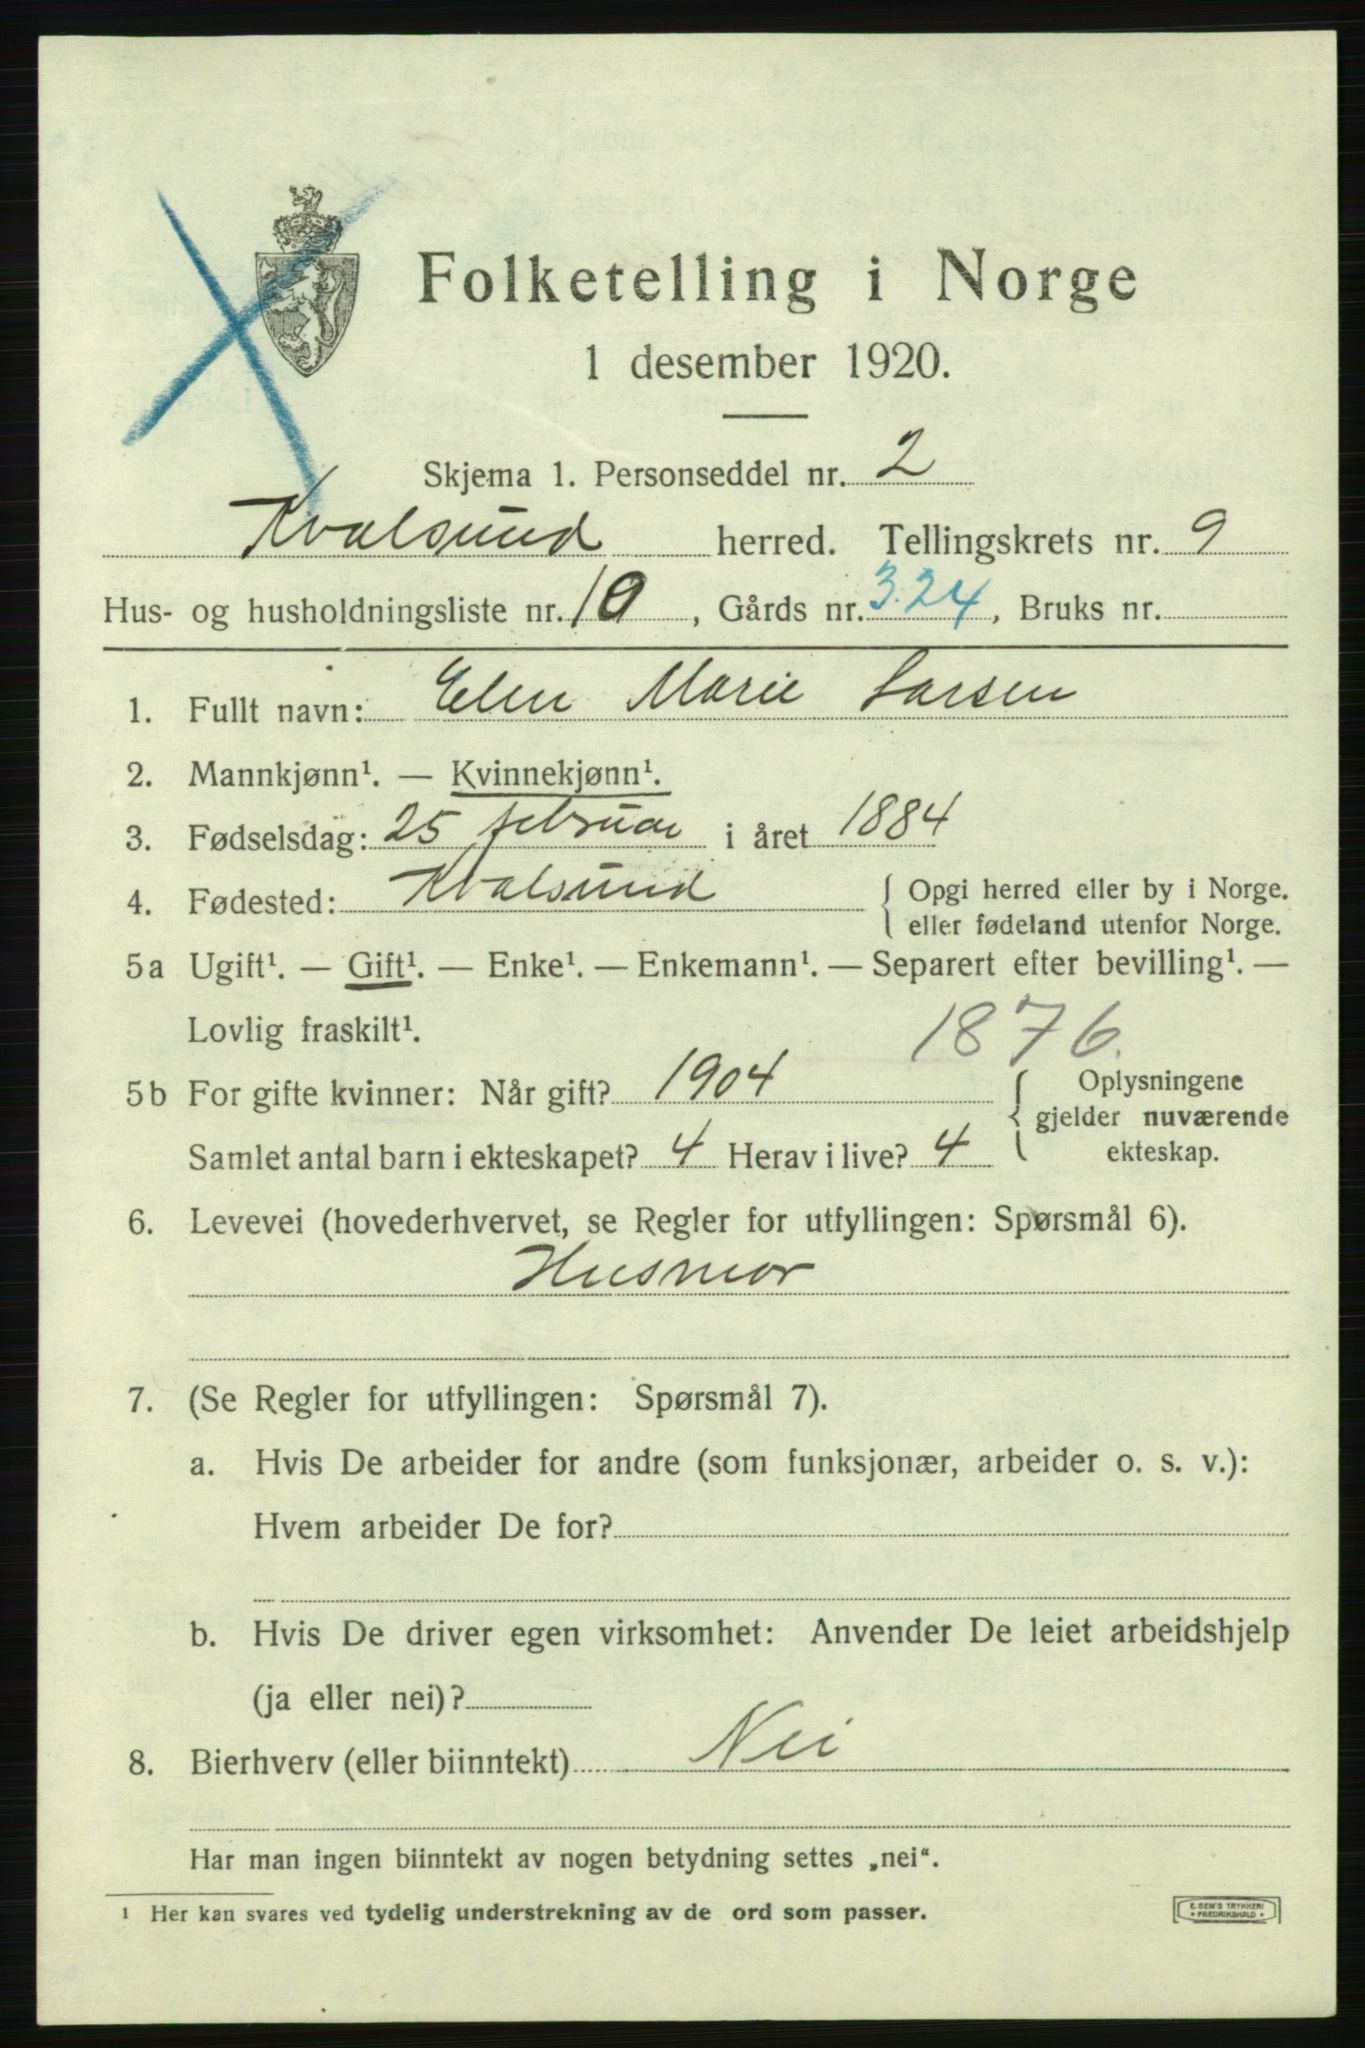 Folketelling i Norge
1 desember 1920.
Skjema 1. Personseddel nr. 2
Kvalsund herred. Tellingskrets nr. 9
Hus- og husholdningsliste nr. 10, Gårds nr. 3.24, Bruks nr.
1. Fullt navn: Elen Marie Larsen
2. Mannkjønn¹. — Kvinnekjønn¹.
3. Fødselsdag: 25 februar i året 1884
4. Fødested: Kvalsund { Opgi herred eller by i Norge.
eller fødeland utenfor Norge.
5a Ugift¹. — Gift¹. — Enke¹. — Enkemann¹. — Separert efter bevilling¹. —
Lovlig fraskilt¹.
1876.
5b For gifte kvinner: Når gift? 1904
Samlet antal barn i ekteskapet? 4 Herav i live? 4
Oplysningene
gjelder nuværende
ekteskap.
6. Levevei (hovederhvervet, se Regler for utfyllingen: Spørsmål 6).
Husmor
7. (Se Regler for utfyllingen: Spørsmål 7).
a. Hvis De arbeider for andre (som funksjonær, arbeider o. s. v.):
Hvem arbeider De for?
b. Hvis De driver egen virksomhet: Anvender De leiet arbeidshjelp
(ja eller nei)?
8. Bierhverv (eller biinntekt) Nei
Har man ingen biinntekt av nogen betydning settes „nei“.
¹ Her kan svares ved tydelig understrekning av de ord som passer.
E. SEM'S TRYKKERI
* FREDRIKSHALD *